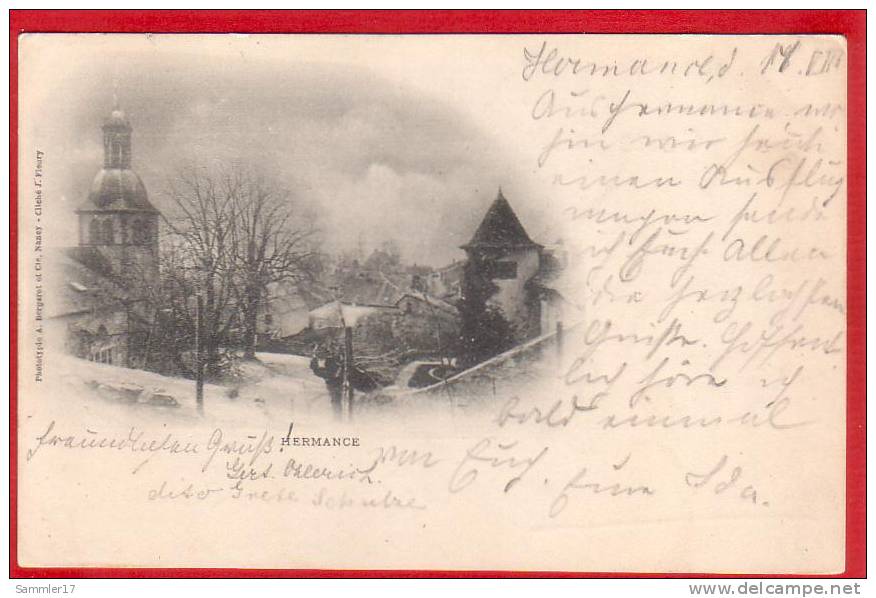 Hermance, d. 18. VIII
Aus Hermance, wo
hin wir heute
einen Ausflug
machen sende
ich Euch Allen
die herzlichsten
Grüße. Hoffent
lich höre ich
bald einmal
von Euch. Eure Ida.
Phototypie A. Bergeret et Cie, Nancy - Cliché J. Fleury
HERMANCE
freundlichen Gruß!
Gert.
dito Grete Schulze
Sammler17
www.delcampe.net